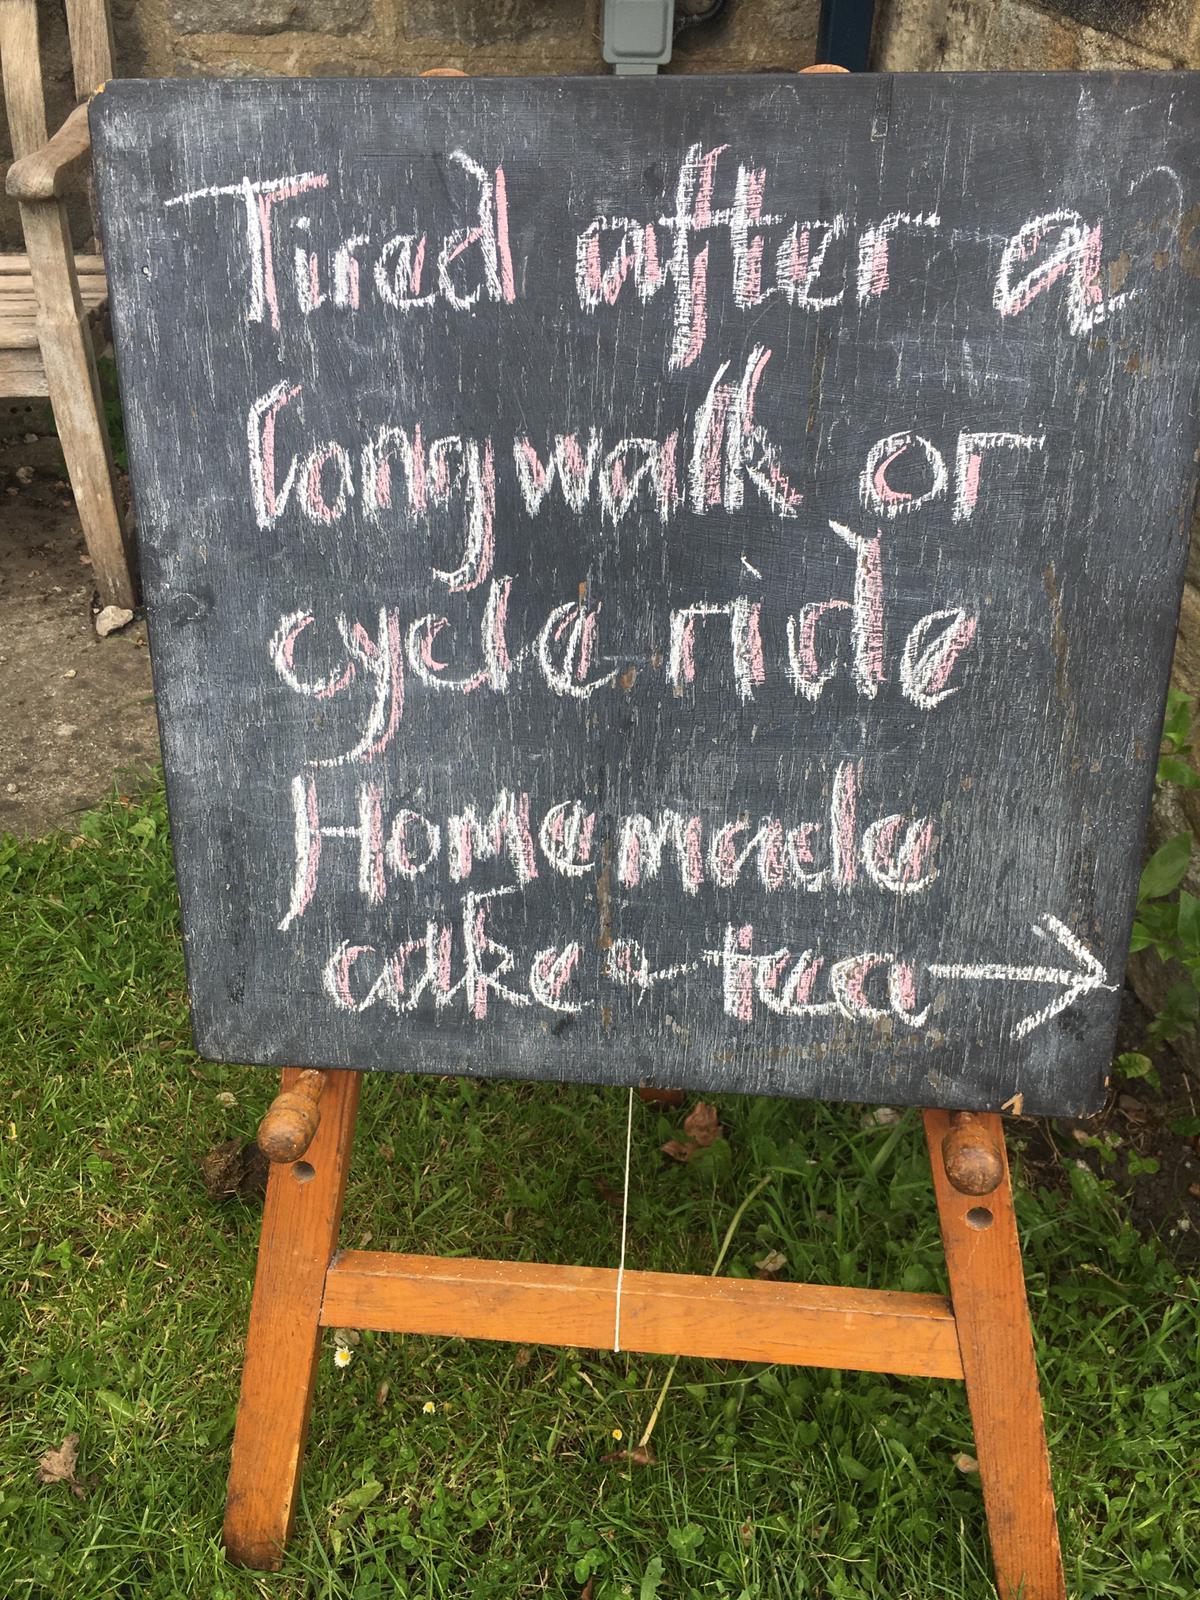 Tired after a
long walk or
cycle ride
Homemade
cake & tea →